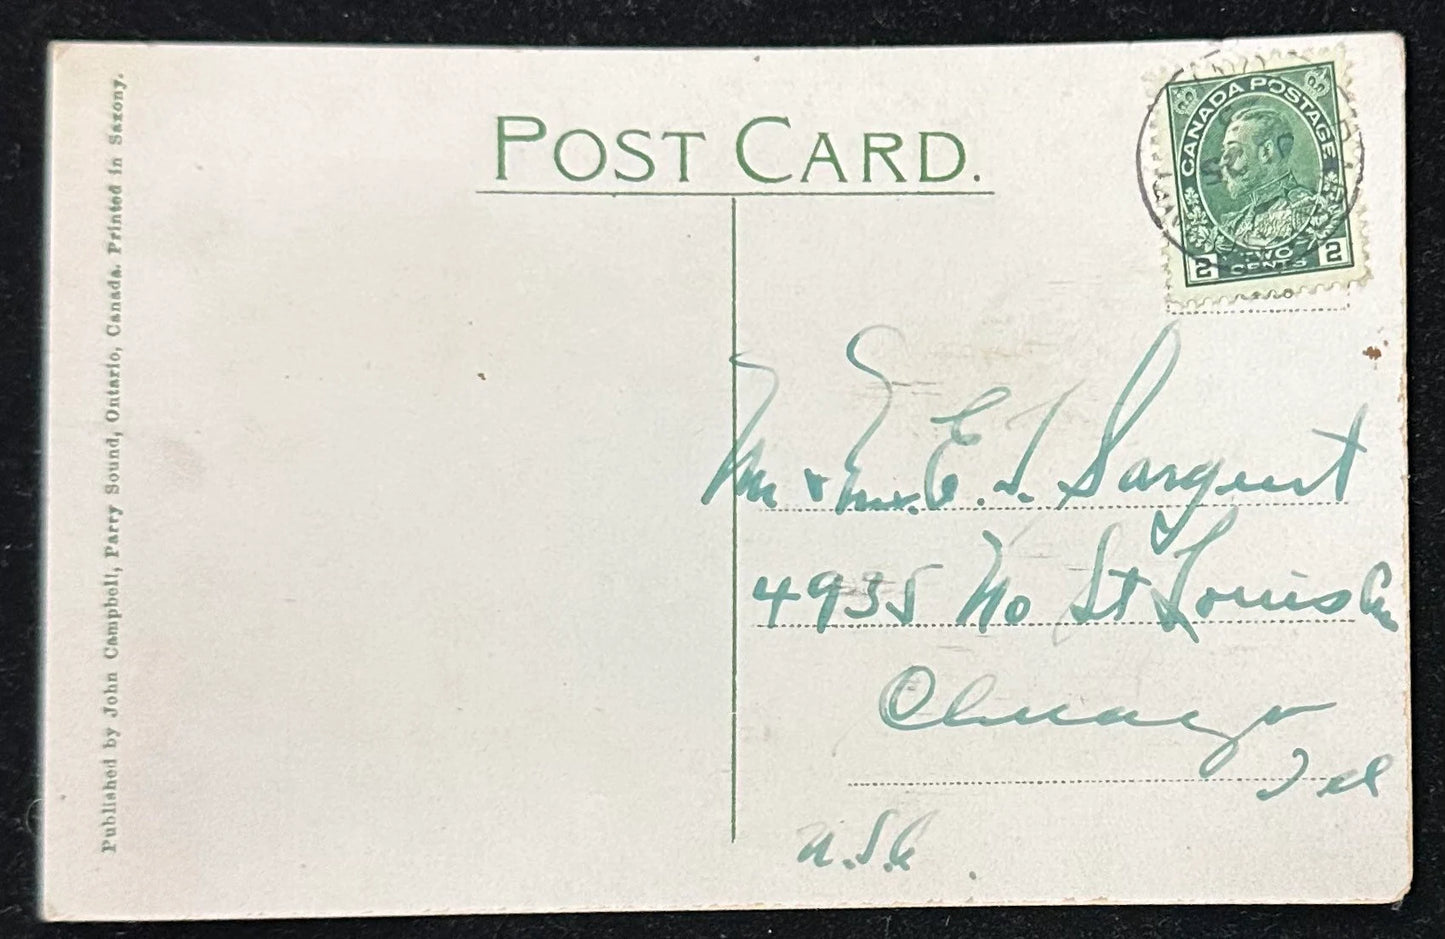 Published by John Campbell, Parry Sound, Ontario, Canada. Printed in Saxony.
POST CARD.
CANADA POSTAGE
25
2 TWO CENTS 2
Mr & Mrs. E. T. Sargent
4935 No St Louis Av
Chicago
Ill
U.S.A.